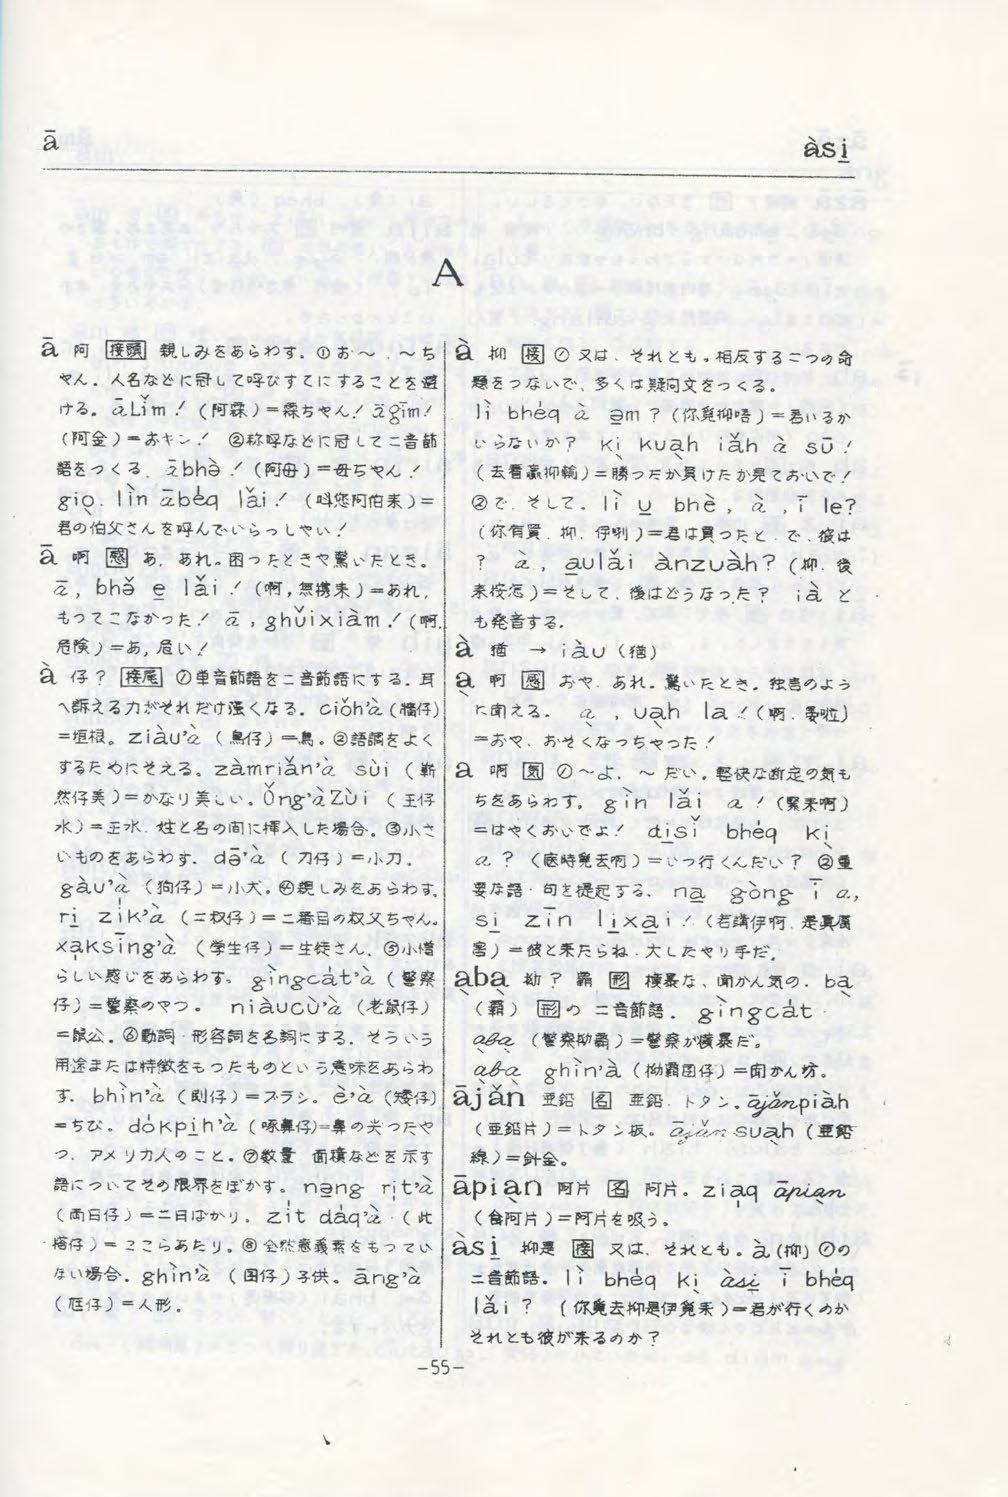 ā
àsi̠
A
ā 阿 接頭 親しみをあらわす。①お～．～ち
ゃん。人名などに冠して呼びすてにすることを避
ける。āLǐm！（阿霖）＝霖ちゃん！āgīm！
（阿金）＝おキン！ ②称呼などに冠して二音節
語をつくる．ābhə̀！（阿母）＝母ちゃん！
lìn ābéq lǎi！（叫您阿伯来）＝
君の伯父さんを呼んでいらっしゃい！
ā 啊 感 あ．あれ。困ったときや驚いたとき。
ā，bhə̌ e̠ lǎi！（啊，無携来）＝あれ，
もってこなかった！ā，ghǔixiàm！（啊
危険）＝あ，危い！
à 仔？ 接尾 ①単音節語を二音節語にする．耳
へ訴える力がそれだけ強くなる．cǐòh'à（牆仔）
＝垣根。ziàu'à（鳥仔）＝鳥。②語調をよく
するためにそえる。zàmriǎn'à sùi（嶄
然仔美）＝かなり美しい。Ǒng'àZùi（王仔
水）＝王水．姓と名の間に挿入した場合。③小さ
いものをあらわす．də̄'à（刀仔）＝小刀．
gàu'à（狗仔）＝小犬。④親しみをあらわす。
ri̠ zík'à（二叔仔）＝二番目の叔父ちゃん。
xa̍ksīng'à（学生仔）＝生徒さん．⑤小憎
らしい感じをあらわす。gìngcát'à（警察
仔）＝警察のやつ。niàucù'à（老鼠仔）
＝鼠公。⑥動詞·形容詞を名詞にする．そういう
用途または特徴をもったものという意味をあらわ
す．bhìn'à（刷仔）＝ブラシ．è'à（矮仔）
＝ちび．dókpi̠h'à（啄鼻仔）＝鼻の尖ったや
つ．アメリカ人のこと。⑦数量·面積などを示す
語についてその限界をぼかす。nə̠ng ri̍t'à
（両日仔）＝二日ばかり．zít dáq'à（此
搭仔）＝ここらあたり。⑧全然意義素をもってい
ない場合．ghìn'à（囝仔）子供．āng'à
（尪仔）＝人形．
à 抑 接 ①又は．それとも。相反する二つの命
題をつないで．多くは疑問文をつくる．
lì bhéq à ə̠m？（你覓抑唔）＝君いるか
いらないか？ kı̀ kua̠h iǎh à sū！
（去看贏抑輸）＝勝ったか負けたか見ておいで！
②で．そして．lì u̠ bhè，à，ī le？
（你有買．抑．伊咧）＝君は買ったと．で．彼は
？ à．，a̠ulǎi ànzuàh？（抑．後
来按怎）＝そして．後はどうなった？ ià と
も発音する．
à 猶 → iàu（猶）
a̖ 啊 感 おや．あれ。驚いたとき．独言のよう
に聞える．a̖，ua̖h la！（啊．晏啦）
＝おや．おそくなっちゃった！
a 啊 気 ①～よ．～だい。軽快な断定の気も
ちをあらわす。gìn lǎi a！（緊来啊）
＝はやくおいでよ！ di̠sǐ bhéq ki̖
a？（底時覓去啊）＝いつ行くんだい？ ②重
要な語·句を提起する．na̠ gòng ī a，
si̠ zīn li̠xa̠i！（若講伊啊．是真厲
害）＝彼と来たらね．大したやり手だ．
a̖ba̖ 抝？覇 形 横暴な．聞かん気の．ba̖
（覇）形の二音節語．gìngcát
a̖ba̖（警察抝覇）＝警察が横暴だ。
a̖ba̖ ghìn'à（抝覇囝仔）＝聞かん坊．
ājǎn 亜鉛 名 亜鉛．トタン。ājǎnpiàh
（亜鉛片）＝トタン板。ājǎnsua̖h（亜鉛
線）＝針金。
āpia̖n 阿片 名 阿片。zia̍q āpia̖n
（食阿片）＝阿片を吸う。
àsi̠ 抑是 接 又は．それとも。à（抑）①の
二音節語．lì bhéq ki̖ àsi̠ ī bhéq
lǎi？（你覓去抑是伊覓来）＝君が行くのか
それとも彼が来るのか？
－55－